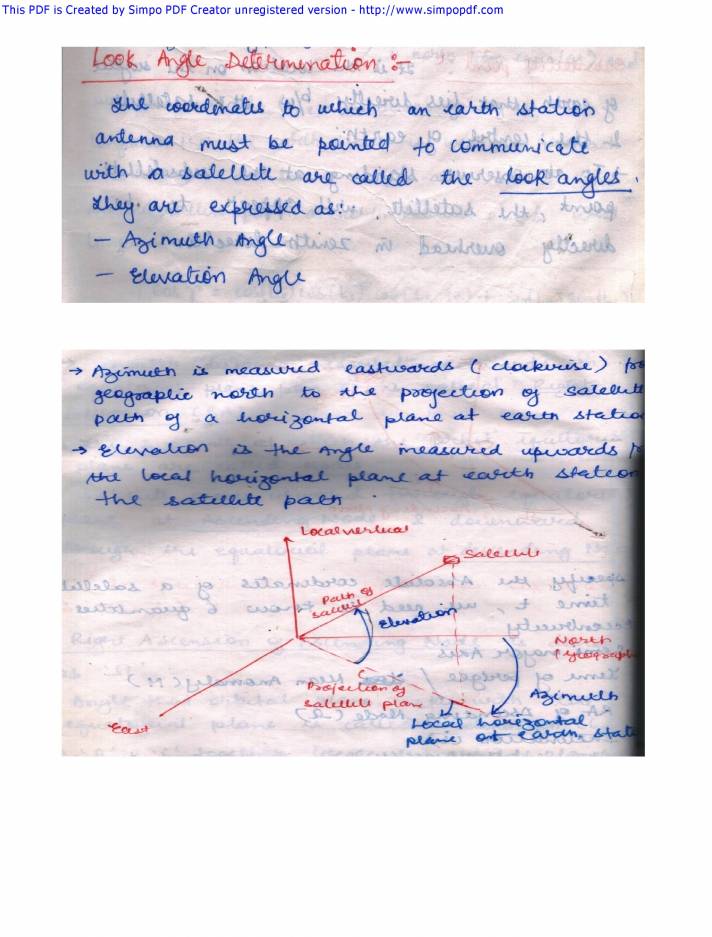 This PDF is Created by Simpo PDF Creator unregistered version - http://www.simpopdf.com
Look Angle Determination :-
The coordinates to which an earth station
antenna must be pointed to communicate
with a satellite are called the look angles.
They are expressed as:
- Azimuth Angle
- Elevation Angle
→ Azimuth is measured eastwards (clockwise) fro
geographic north to the projection of satellit
path of a horizontal plane at earth statio
→ Elevation is the Angle measured upwards
the local horizontal plane at earth station
the satellite path.
Local vertical
Satellite
Path of
satellit
Elevation
North
(Geograph
Projection of
satellite plane
Azimuth
East
Local horizontal
plane at earth stati